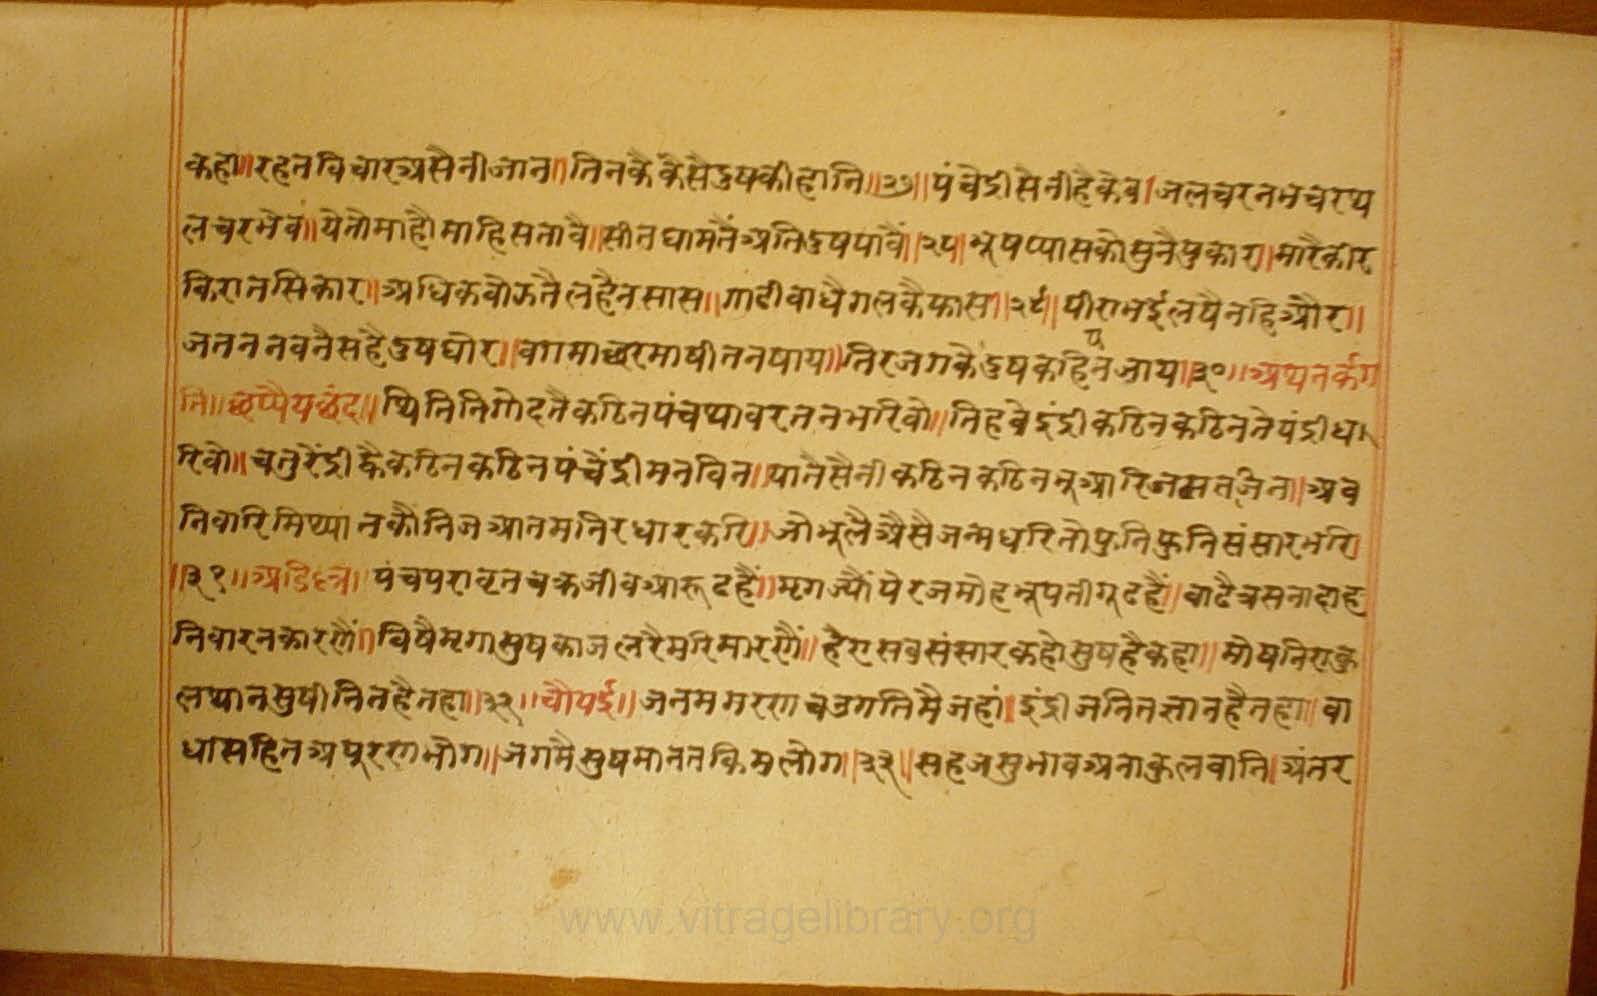 कहो॥रहतविचारअसैनीजान॥तिनकैकैसैदुषकीहानि॥२७॥पंचेद्रीसेनीहैकेव।जलचरनभचरथ
लचरभेव॥येतोमाहौमाहिसतावै॥सीतघामतैंअतिदुषपावैं॥२८॥भूषप्यासकोसुनैपुकार॥मारैकीर
किरातसिकार॥अधिकबोऊतैलहैनसास॥गाढीबाधैगलकैफास॥२९॥पीराभईलषैनहिऔर॥
जतननवनैसहैदुषघोर॥वागमाछरमाषीतनषाय॥तिरजगकैदुषकहिनजाय॥३०॥अथनर्कग
ति॥छप्पैयछंद॥थितिनिगोदतैकठिनपंचथावरतनभरिवो॥तिहवेइंद्रीकठिनकठिनतेयंद्रीधा
रिवो॥चतुरेंद्रीकैकठिनकठिनपंचेंद्रीमनविन॥यातैसैनीकठिनकठिनभूआरिजसतजिन॥अव
निवारिमिथ्यातकौनिजआतमनिरधारकरि॥जोभूलैऔसैजन्मधरितोफुनिफुनिसंसारभरि
॥३१॥अडिल्ल॥पंचपरावृतचक्रजीवआरूढहैं॥मृगज्यौंपेरजमोहभूपतीगूढहैं॥वाढैत्रसनादाह
निवारनकारणैं॥विषैमृगासुषकाजलरैमरिमारणैं॥हैएसवसंसारकहोसुषहैकहा॥मोषनिराकु
लथानसुषीनितहैतहा॥३२॥चौपई॥जनममरणचउगतिमैजहां॥इंद्रीजनितज्ञानहैतहा॥वा
धासहितअपूरणभोग॥जगमैसुषमाततकिमलोग॥३३॥सहजसुभावअनाकुलवानि॥अंतर
प
www.vitragelibrary.org